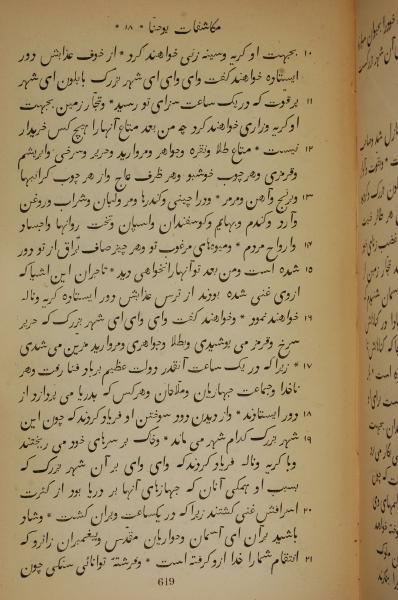 مکاشفات یوحنا * ۱۸ *
۱۰ بجهت او گریه وسینه زنی خواهند کرد * از خوف عذابش دور
ایستاده خواهند گفت وای وای ای شهر بزرگ بابلون ای شهر
۱۱ پرقوت که در یک ساعت سزای تو رسید * وتجار زمین بجهت
او گریه وزاری خواهند کرد چه من بعد متاع آنها را هیچ کس خریدار
۱۲ نیست * متاع طلا ونقره وجواهر ومروارید وحریر وسرخی وابریشم
وقرمزی وهر چوب خوشبو وهر ظرف عاج واز هر چوب گرانبها
۱۳ وبرنج وآهن ومرمر * ودارچینی وکندرها ومر ولبان وشراب وروغن
وآرد وگندم وبهایم وگوسفندان واسبان وتخت روانها واجساد
۱۴ وارواح مردم * ومیوه‌های مرغوب تو وهر چیز صاف براق از تو دور
شده است ومن بعد تو آنها را نخواهی دید * تاجران این اشیا که
۱۵ از وی غنی شده بودند از ترس عذابش دور ایستاده گریه وناله
۱۶ خواهند نمود * وخواهند گفت وای وای ای شهر بزرگ که حریر
سرخ وقرمز می پوشیدی وبطلا وجواهری ومروارید مزین می شدی
۱۷ * زیرا که در یک ساعت آنقدر دولت عظیم برباد فنا رفت وهر
ناخدا وجماعت جهازیان وملاحان وهر کس که بدریا می پردازد از
۱۸ دور ایستادند * واز دیدن دود سوختن او فریاد کردند که چون این
۱۹ شهر بزرگ کدام شهر می ماند * وخاک بر سرهای خود می ریختند
وبا گریه وناله فریاد کردند که وای وای بر آن شهر بزرگ که
بسبب او همگی آنان که جهازهای آنها بر دریا بود از کثرت
۲۰ اسرافش غنی گشتند زیرا که در یکساعت ویران گشت * وشاد
باشید بر آن ای آسمان وحواریان مقدس وپیغمبران زانرو که
۲۱ انتقام شما را خدا ازو گرفته است * وفرشته توانائی سنگی چون
619